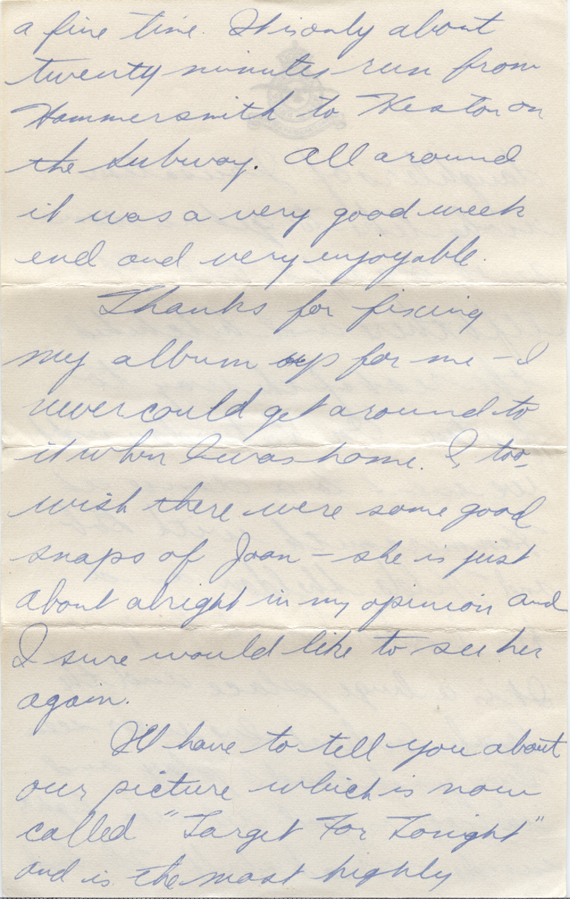 a fine time. It is only about
twenty minutes run from
Hammersmith to Heston on
the subway. All around
it was a very good week
end and very enjoyable.
Thanks for fixing
my album up for me – I
never could get around to
it when I was home. I, too,
wish there were some good
snaps of Joan – she is just
about alright in my opinion and
I sure would like to see her
again.
I'll have to tell you about
our picture which is now
called "Target For Tonight"
and is the most highly